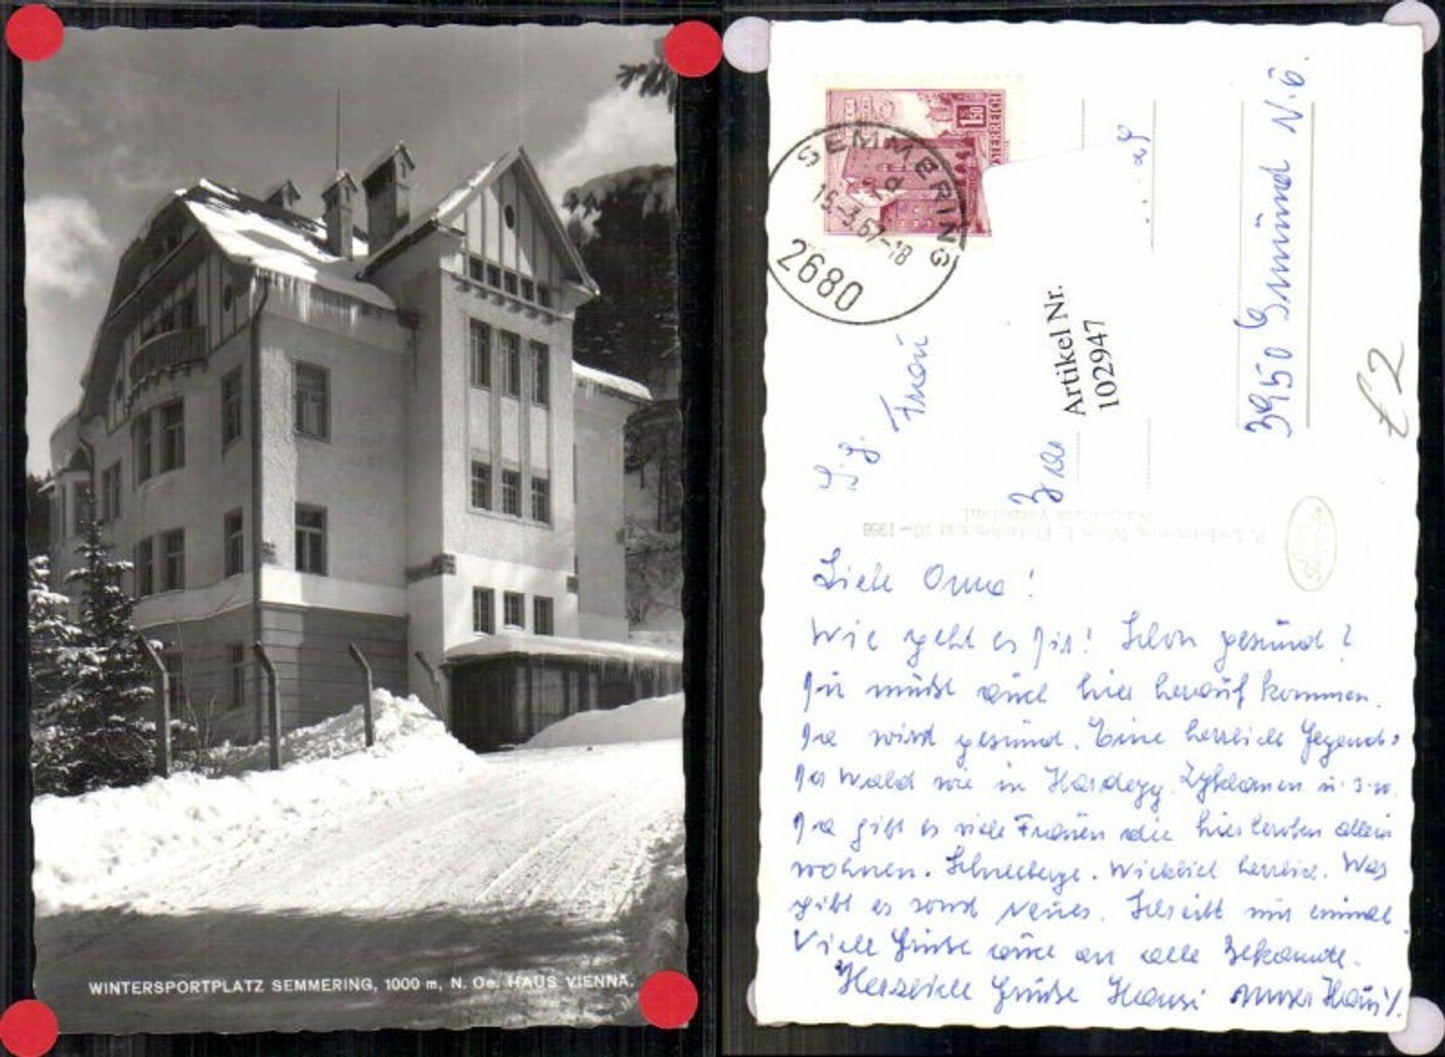 WINTERSPORTPLATZ SEMMERING, 1000 m, N. Oe. HAUS VIENNA.
1.50
ÖSTERREICH
SEMMERING
d
15.-3.67-18
2680
S. g. Frau
Artikel Nr.
102947
3950 Gmünd N.Ö.
£2
Liebe Oma!
Wie geht es Dir! Schon gesund?
Du mußt auch hier herauf kommen.
Da wird gesund. Eine herrliche Gegend.
Der Wald wie in Hardegg. Zyklamen u.s.w.
Da gibt es viele Frauen die hier heroben allein
wohnen. Schneeberge. Wirklich herrlich. Was
gibt es sonst Neues. Schreibt mir einmal.
Viele Grüße auch an alle Bekannte.
Herzliche Grüße Hansi unser Haus!